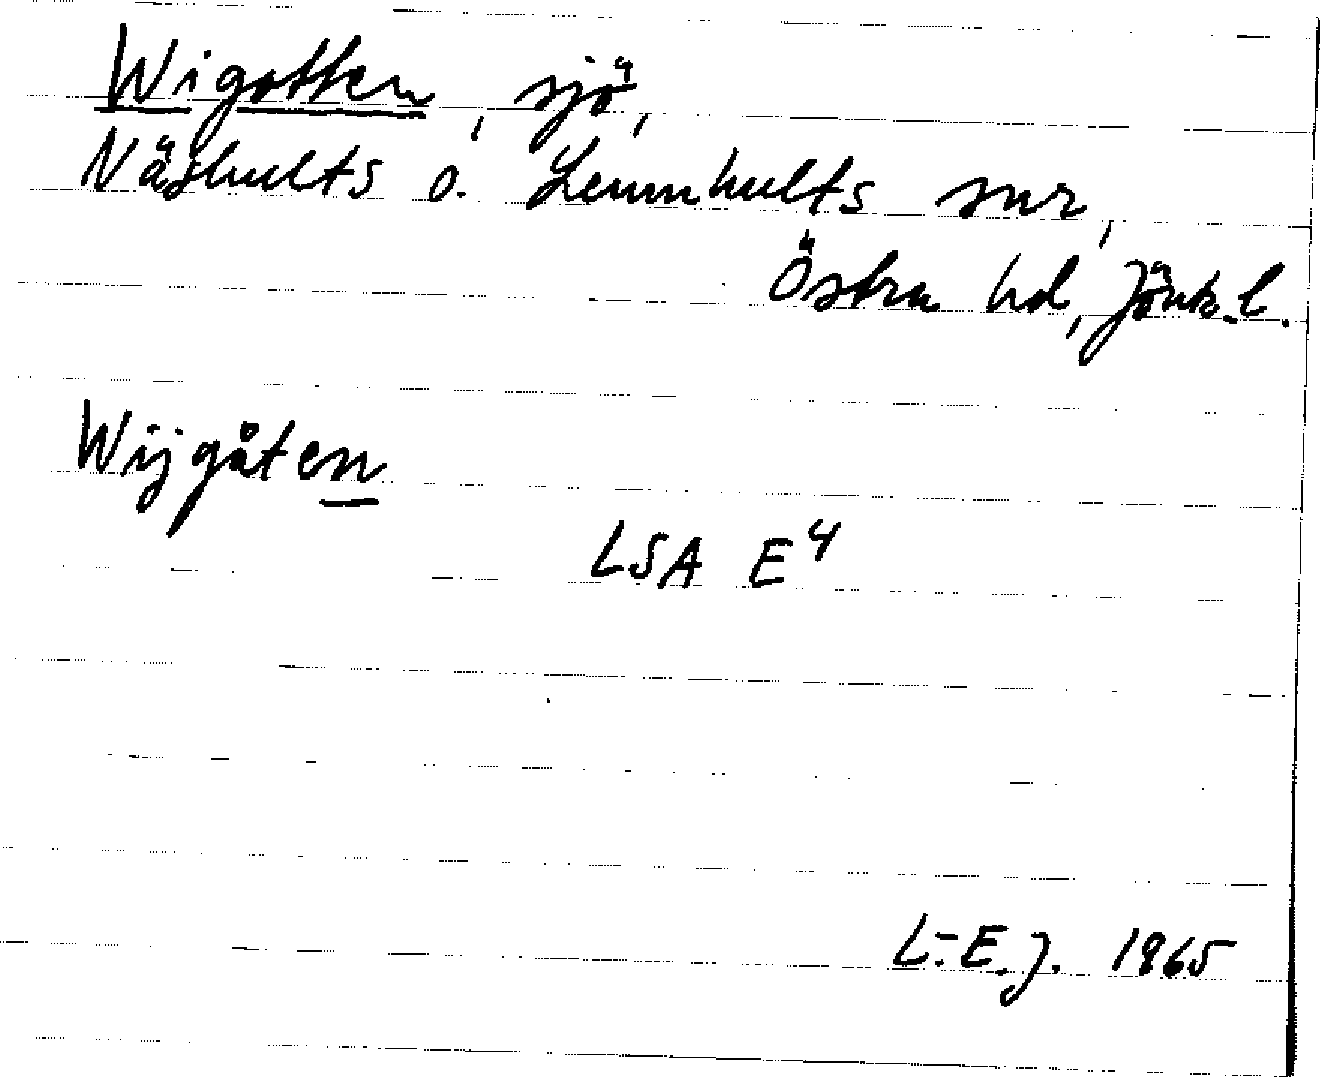 Wigotten, sjö,
Näshults o. Lemnhults snr,
Östra hd, Jönk.l.
Wijgåten
LSA E4
L.-E.J. 1965